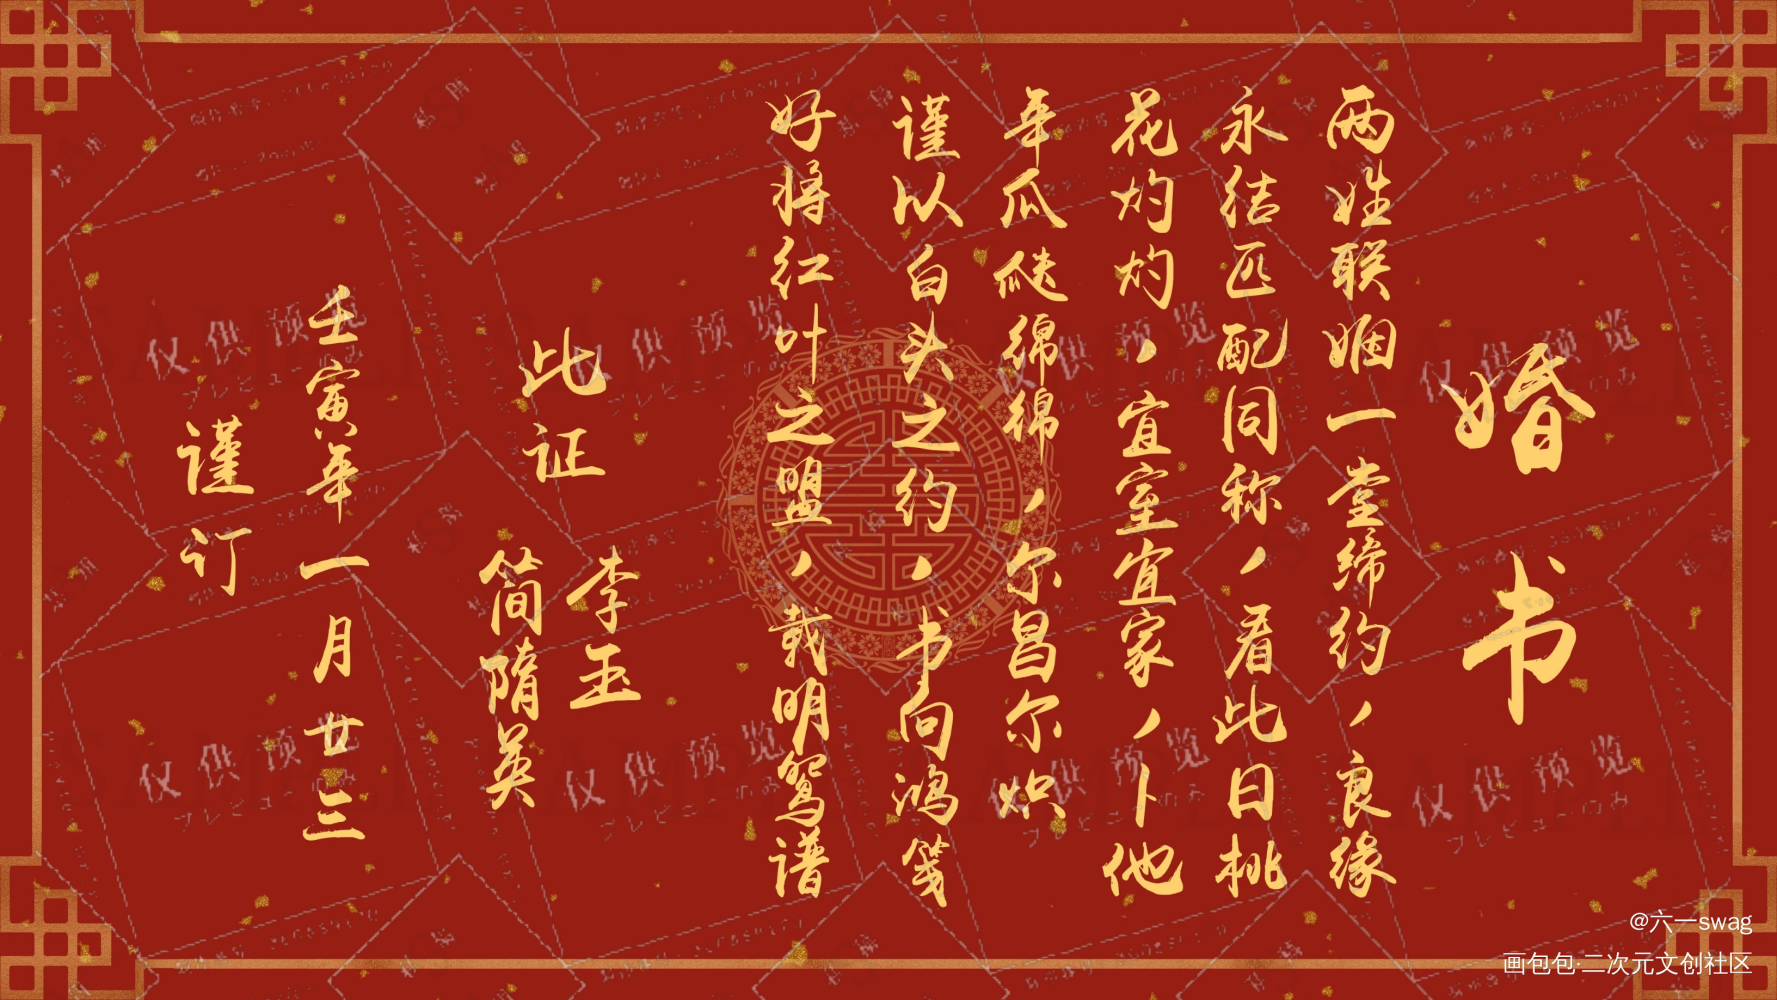 婚书
两姓联姻一堂缔约，良缘
永结匹配同称，看此日桃
花灼灼，宜室宜家，卜他
年瓜瓞绵绵，尔昌尔炽
谨以白头之约，书向鸿笺
好将红叶之盟，载明鸳谱
此证
李玉
简隋英
壬寅年一月廿三
谨订
仅供预览
仅供预览
仅供预览
仅供预览
仅供预览
仅供预览
仅供预览
仅供预览
@六一swag
画包包·二次元文创社区